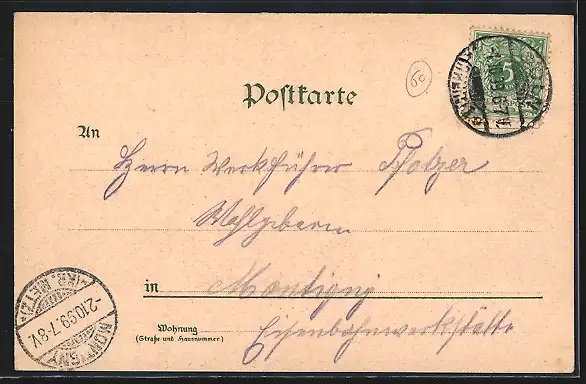 5
60
Postkarte
An
Herrn Werkführer
Wohlgeboren
in Montigny
Wohnung
(Straße und Hausnummer)
Eisenbahnwerkstätte
MONTIGNY
-2.10.99.7-8V.
(KR. METZ)